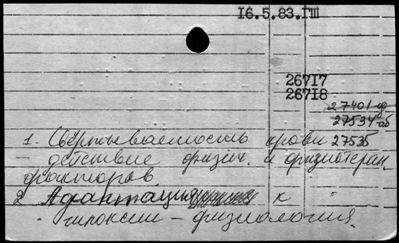 16.5.83.ГIII
26717
26718
27401
27534 об
1. Свёртываемость крови 27535
— действие физич. и физиотерап.
факторов
2. Адаптация к
- гипоксии — физиология.